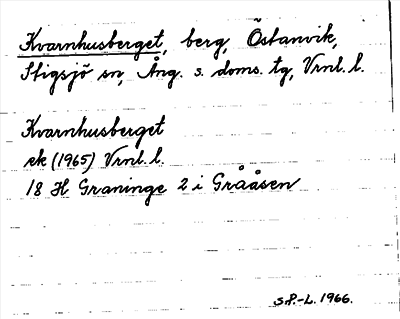 Kvarnhusberget, berg, Östanvik,
Stigsjö sn, Ång. s. doms. tg, Vrnl. l.
Kvarnhusberget
ek (1965) Vrnl. l.
18 H Graninge 2 i Grååsen
S.P.-L. 1966.